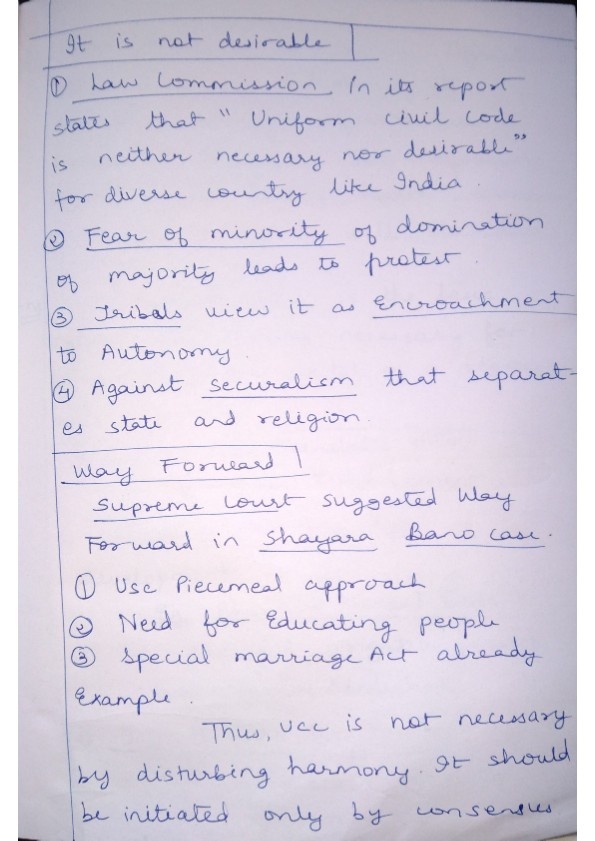 It is not desirable
① Law Commission In its report
states that "Uniform civil code
is neither necessary nor desirable"
for diverse country like India.
② Fear of minority of domination
of majority leads to protest.
③ Tribals view it as Encroachment
to Autonomy.
④ Against securalism that separat-
es state and religion.
Way Forward
Supreme Court suggested Way
Forward in Shayara Bano case.
① Use Piecemeal approach
② Need for Educating people
③ Special marriage Act already
Example.
Thus, UCC is not necessary
by disturbing harmony. It should
be initiated only by consensus